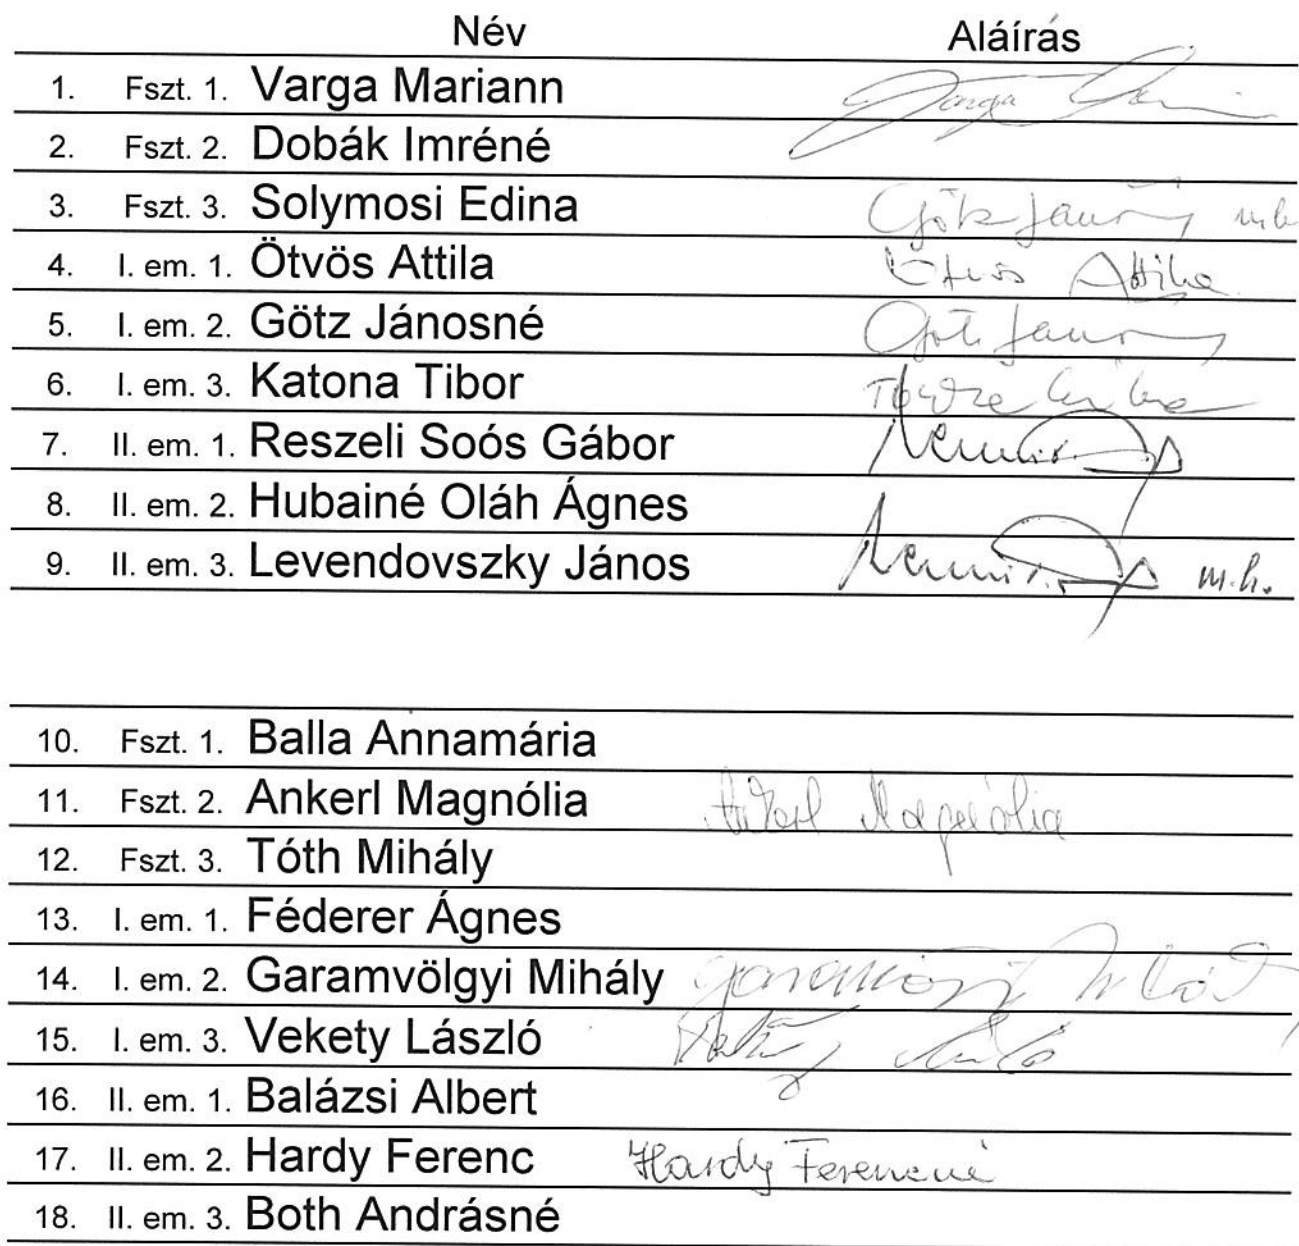 Név Aláírás
1. Fszt. 1. Varga Mariann Varga
2. Fszt. 2. Dobák Imréné
3. Fszt. 3. Solymosi Edina Götz János m.h.
4. I. em. 1. Ötvös Attila Ötvös Attila
5. I. em. 2. Götz Jánosné Götz János
6. I. em. 3. Katona Tibor
7. II. em. 1. Reszeli Soós Gábor
8. II. em. 2. Hubainé Oláh Ágnes
9. II. em. 3. Levendovszky János m.h.
10. Fszt. 1. Balla Annamária
11. Fszt. 2. Ankerl Magnólia Ankerl Magnólia
12. Fszt. 3. Tóth Mihály
13. I. em. 1. Féderer Ágnes
14. I. em. 2. Garamvölgyi Mihály Garamvölgyi
15. I. em. 3. Vekety László
16. II. em. 1. Balázsi Albert
17. II. em. 2. Hardy Ferenc Hardy Ferencné
18. II. em. 3. Both Andrásné